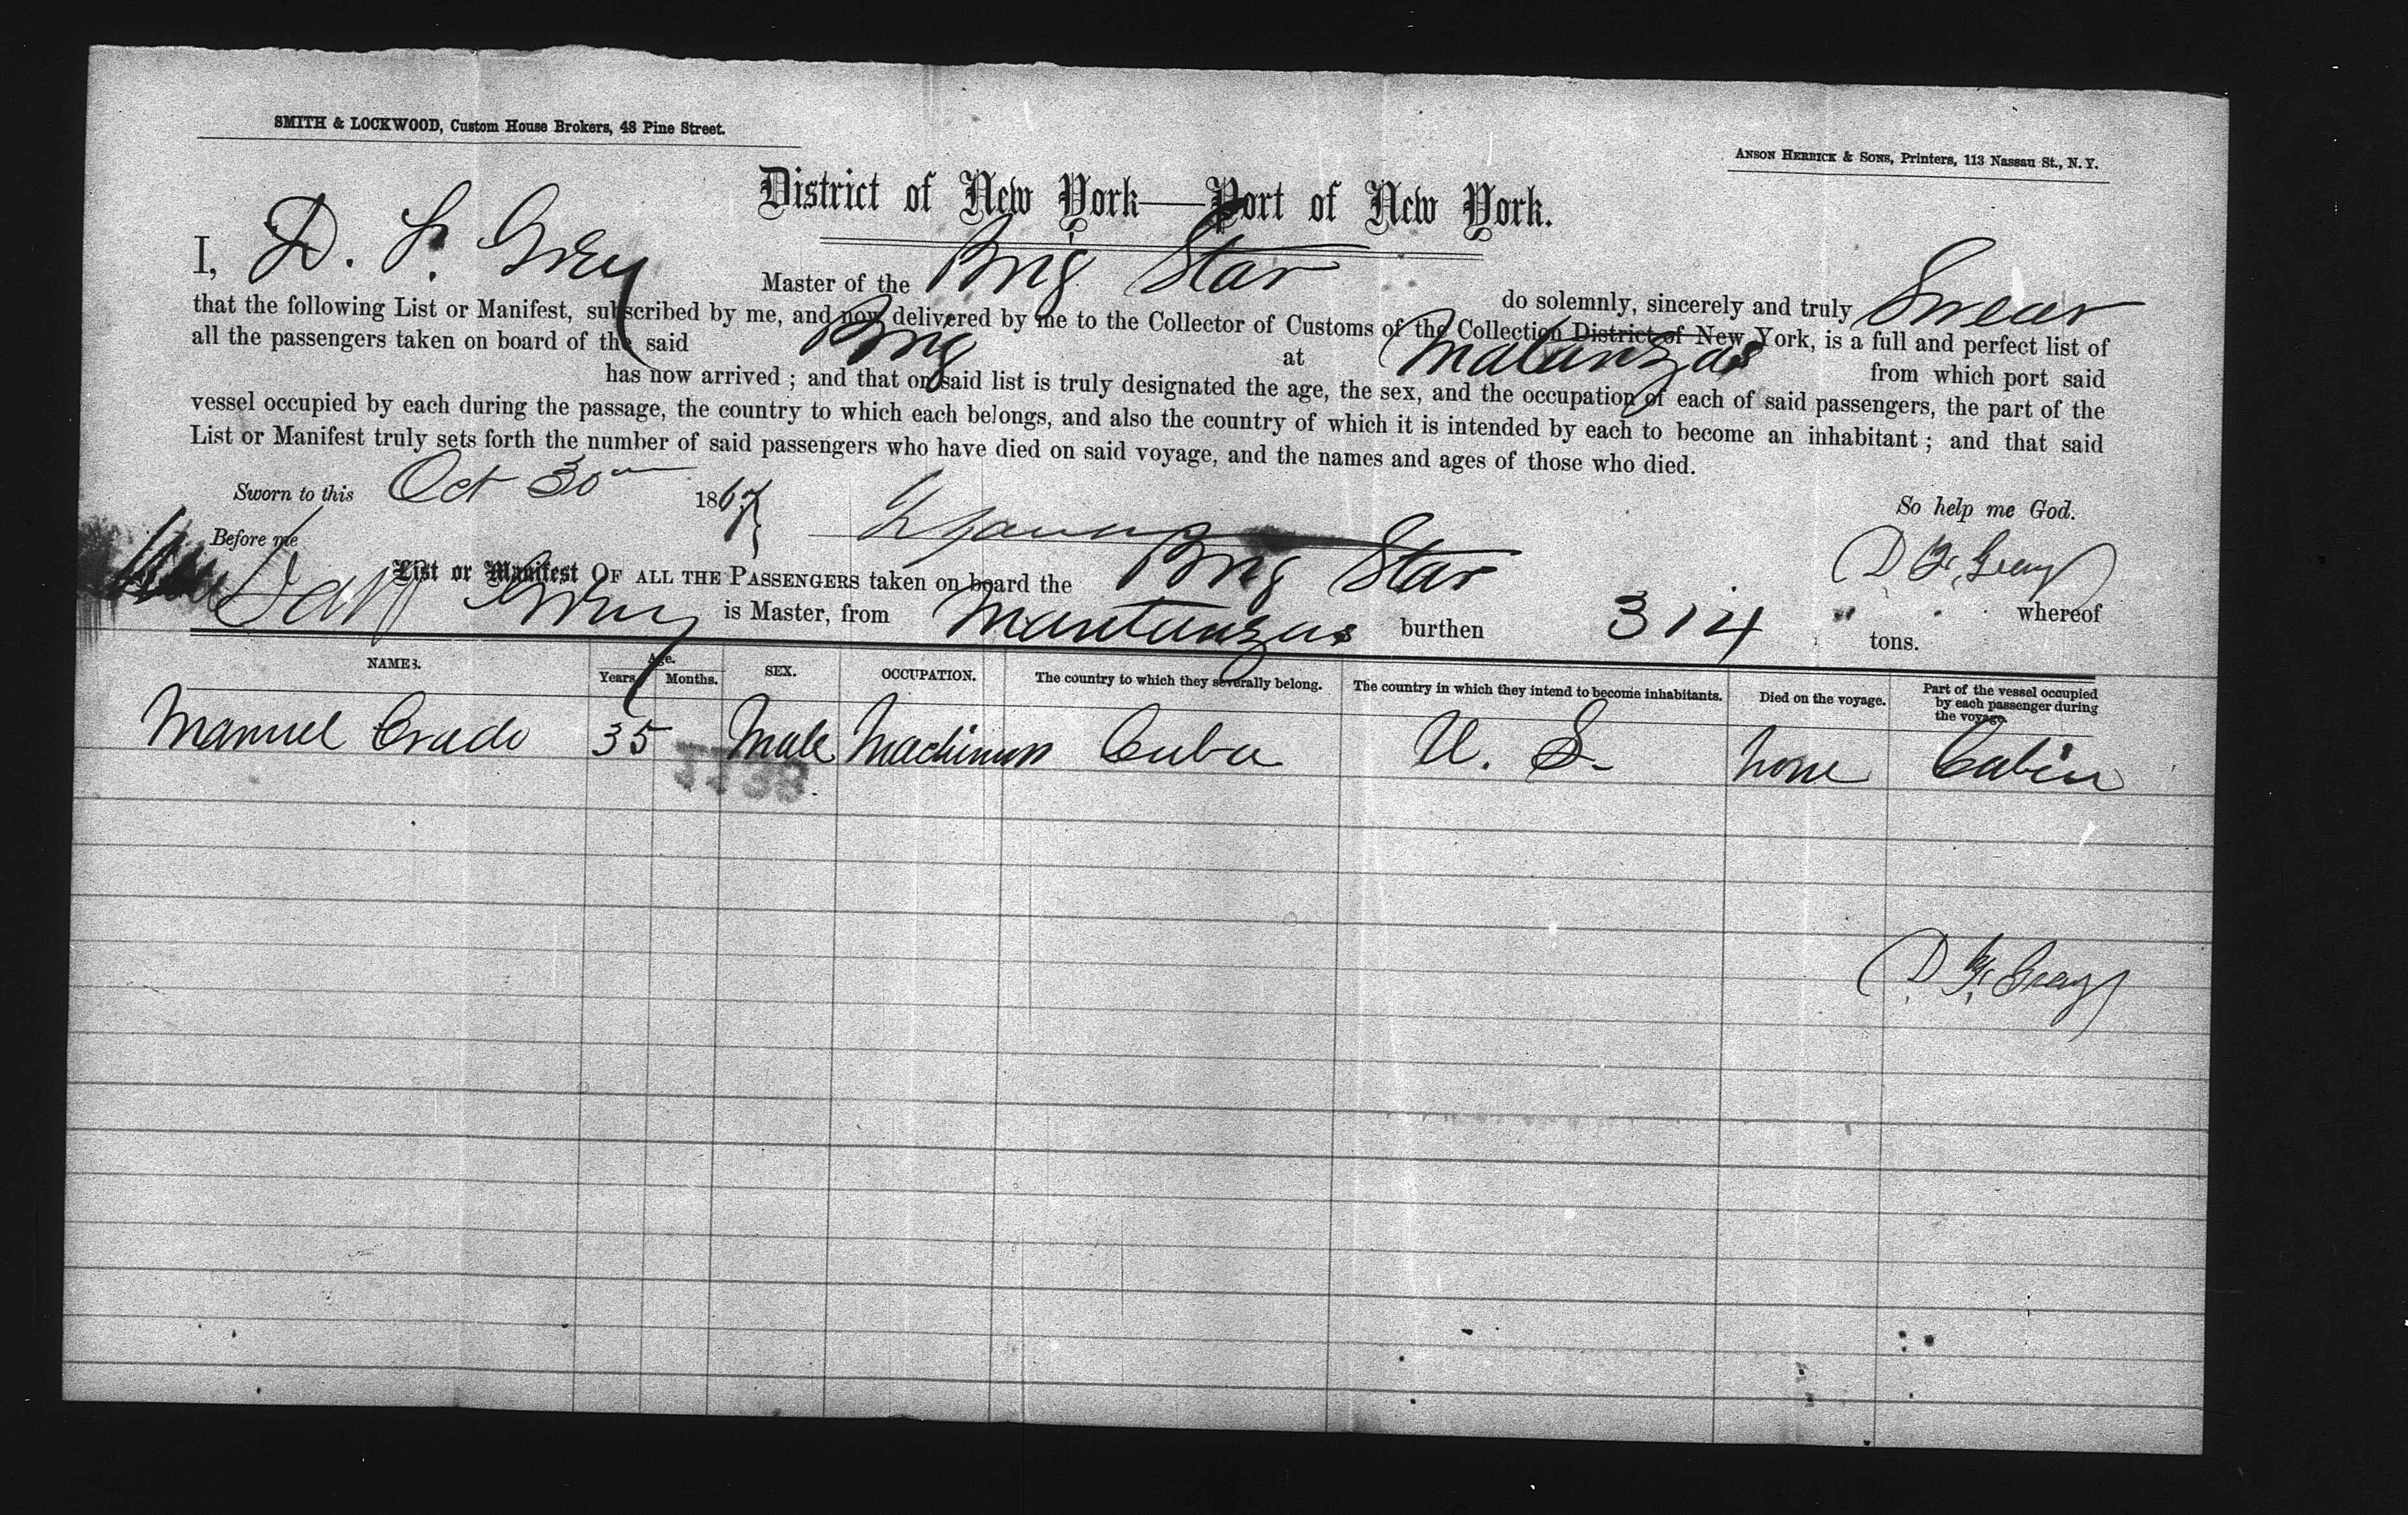 SMITH & LOCKWOOD, Custom House Brokers, 48 Pine Street.
ANSON HERRICK & SONS, Printers, 113 Nassau St., N. Y.
District of New York—Port of New York.
I, D. F. Grey Master of the Brig Star do solemnly, sincerely and truly Swear
that the following List or Manifest, subscribed by me, and now delivered by me to the Collector of Customs of the Collection District of New York, is a full and perfect list of
all the passengers taken on board of the said Brig at Matanzas from which port said
has now arrived ; and that on said list is truly designated the age, the sex, and the occupation of each of said passengers, the part of the
vessel occupied by each during the passage, the country to which each belongs, and also the country of which it is intended by each to become an inhabitant ; and that said
List or Manifest truly sets forth the number of said passengers who have died on said voyage, and the names and ages of those who died.
Sworn to this Oct 30 1867
So help me God.
Before me
D F. Gray
List or Manifest OF ALL THE PASSENGERS taken on board the Brig Star whereof
Grey is Master, from Mantanzas burthen 314 tons.
NAMES. Age. Years. Months. SEX. OCCUPATION. The country to which they severally belong. The country in which they intend to become inhabitants. Died on the voyage. Part of the vessel occupied by each passenger during the voyage.
Manuel Crado 35 Male Cuba U. S. None Cabin
1139
D F. Gray